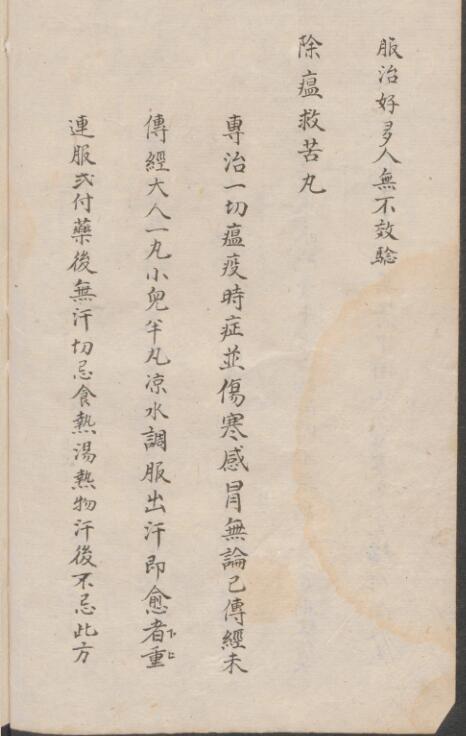 服治好多人無不效騐
除瘟救苦丸
專治一切瘟疫時症並傷寒感冒無論已傳經未
傳經大人一丸小兒半丸凉水調服出汗即愈者重
連服弍付藥後無汗切忌食熱湯熱物汗後不忌此方